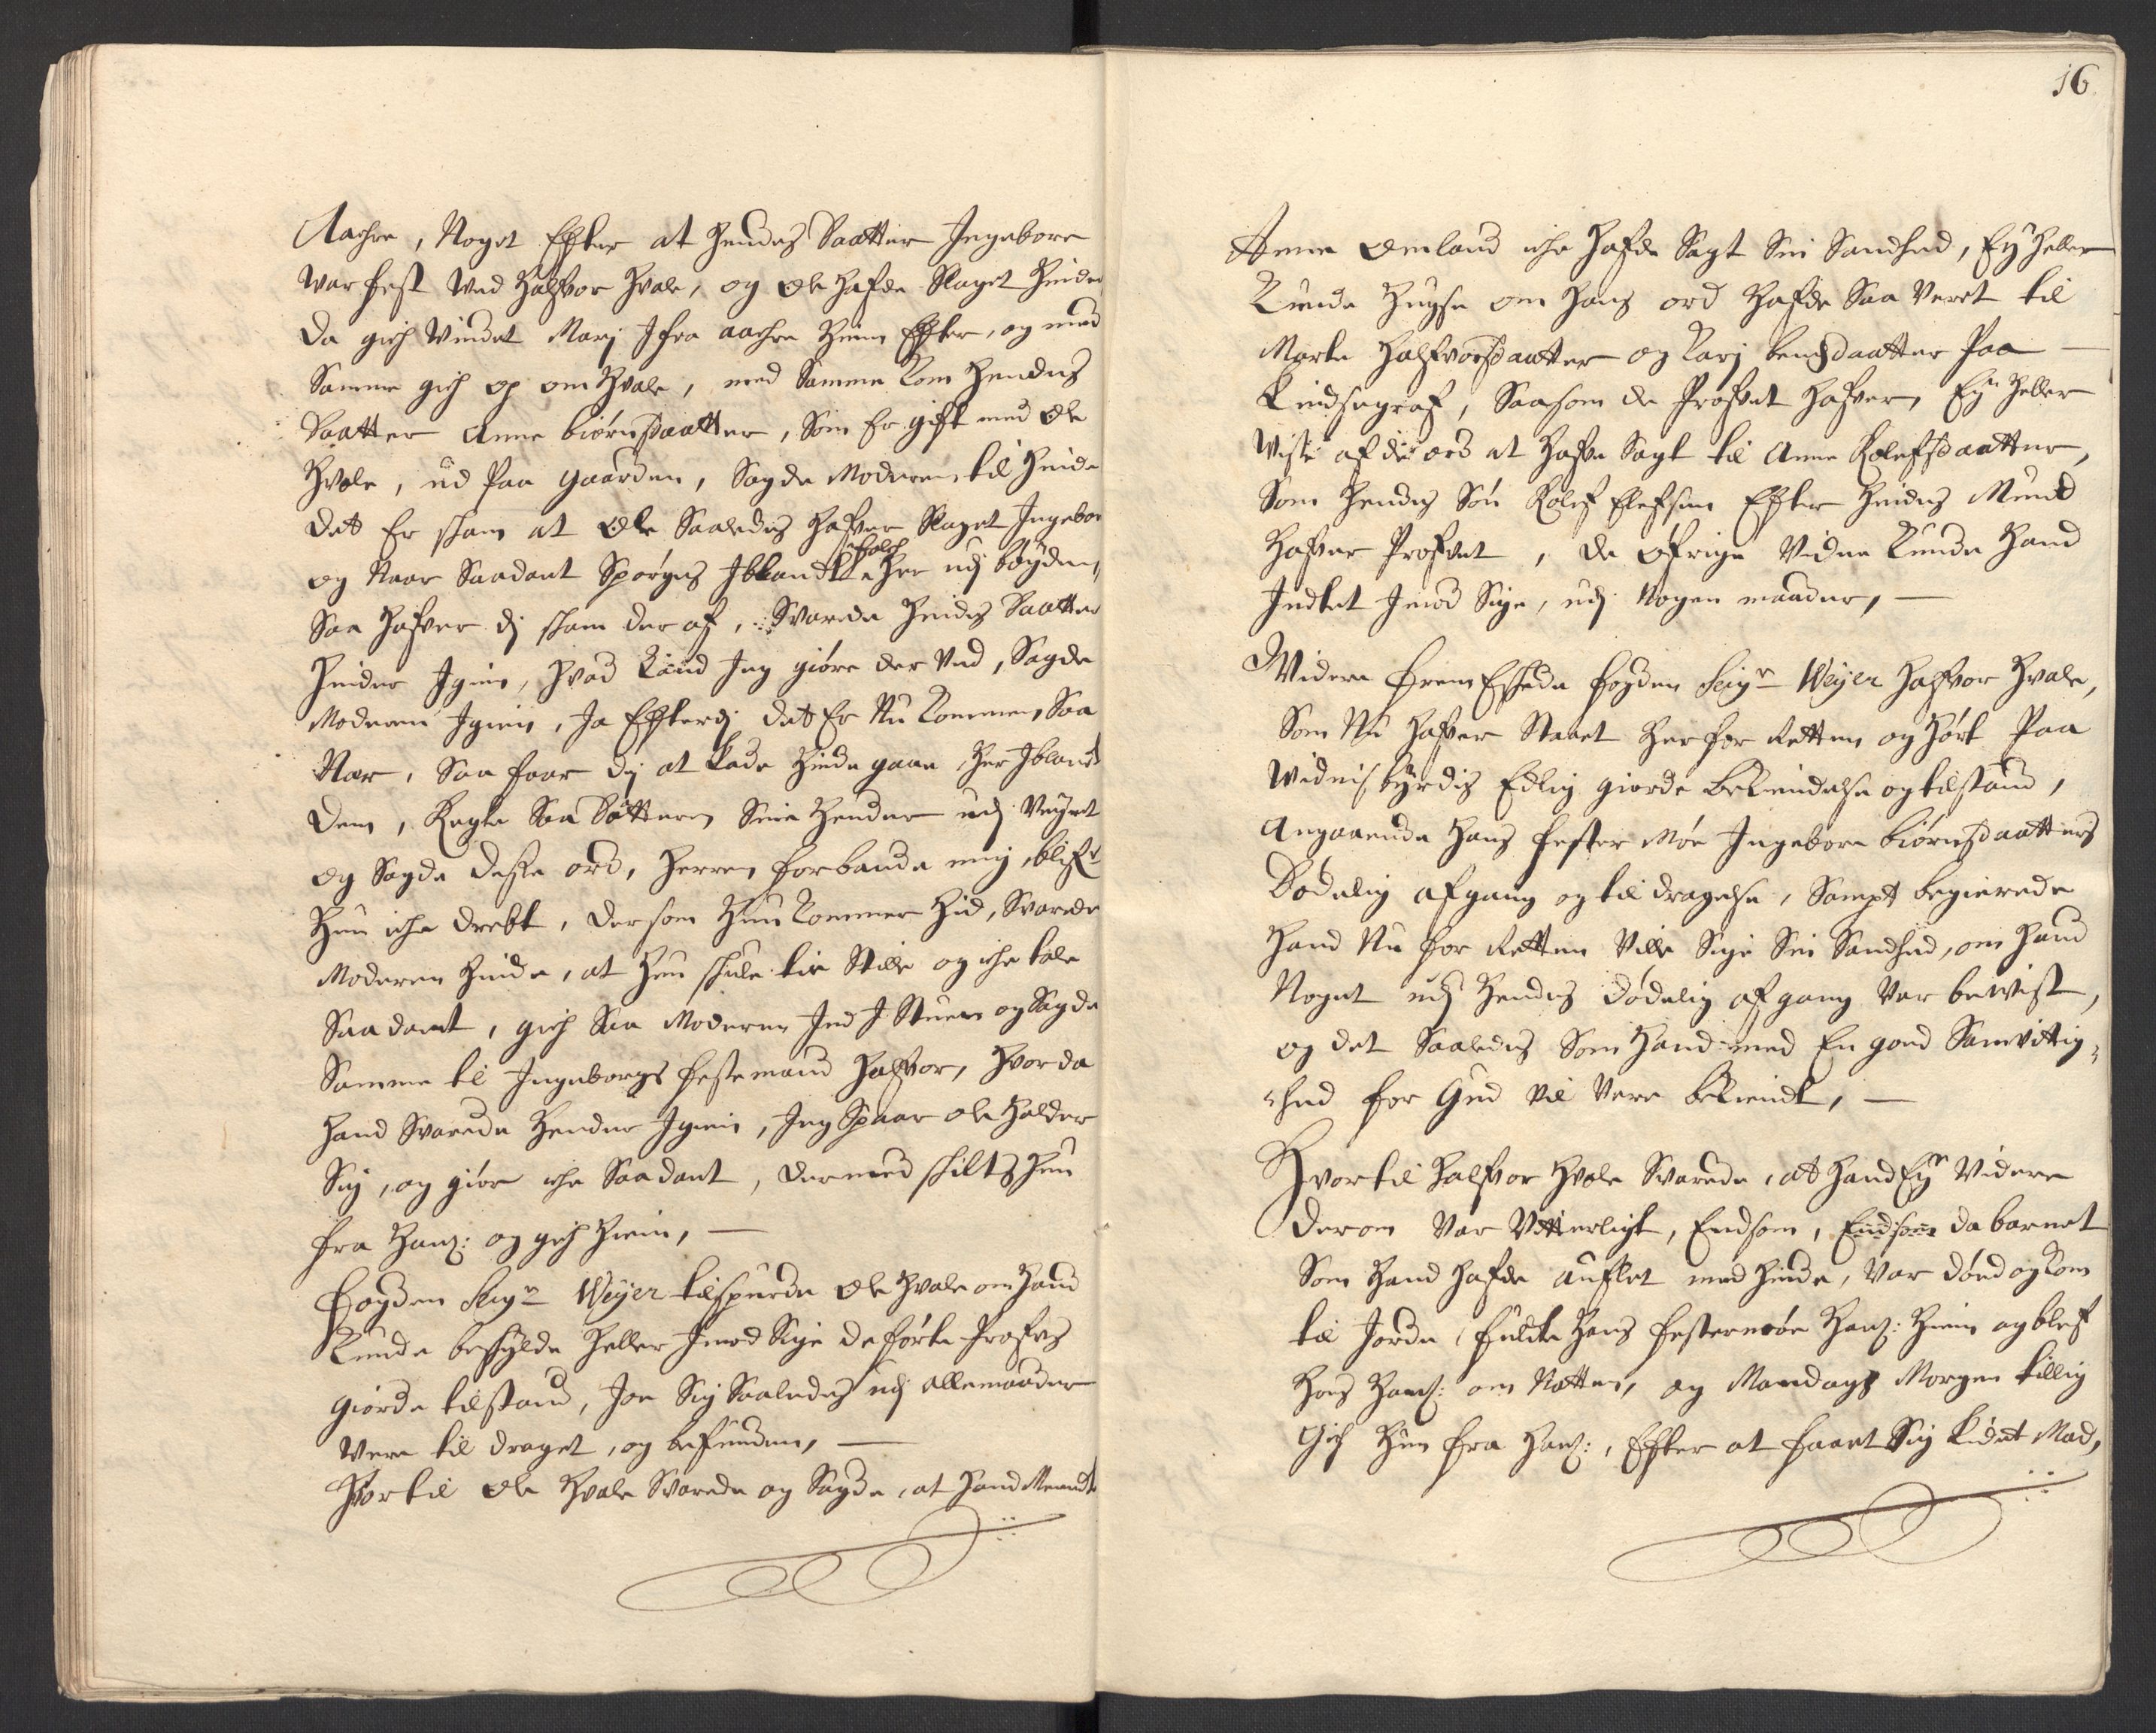 Aachre, Noget Efter at hendes Daatter Ingebore
war fest wed Halfvor Hvale, og Ole hafde Slaget hinde
da gich Vindet Marj Ifra aachre hiem Efter, og med
Samme gich op om Hvale, med Samme kom hendes
Daatter Anne biørnsdaatter, Som Er gift med Ole
Hvale, ud paa gaarden, Sagde Moderen til hende
det Er skam at Ole Saaledes hafver Slaget Ingebor
og Naar Saadant Spørges Iblandt folch her udj bøyden,
Saa hafver dj skam der af, Svarede hindes Daatter
hinder Igien, hvad kand Jeg giøre der ved, Sagde
Moderen Igien, Ja Efterdj det Er Nu kommen Saa
Nær, Saa faar dj at lade hinde gaae her Iblandt
dem, Ragte Saa Datteren Sine hender udj Veyret
og Sagde desse ord, herren forbande mig, blifr
hun iche drebt, dersom hun kommer hid, Svarede
Moderen hinde, at hun skule tie Stille og iche tale
Saadant, gich Saa Moderen Ind I Stuen og Sagde
Samme til Ingeborgs festemand Halfvor, hvor da
hand Svarede hender Igien, Jeg Spaar Ole holder
Sig, og giør iche Saadant, dermed skiltes hun
fra ham: og gich hiem, —
Fogden Seigr Weyer tilspurde Ole Hvale om hand
kunde beskylde heller Imod Sige de førte Profvs
giorde tilstand, Joe Sig Saaledes udj allemaader
Vere til draget, og befunden, —
Hvortil Ole Hvale Svarede og Sagde, at hand Meendt
16
Anne Omland iche hafde Sagt Sin Sandhed, Ey heller
kunde hugse om hans ord hafde Saa Veret til
Marte Halfvorsdaatter og Karj bendsdaatter paa —
kindsagraf, Saasom de Profvet hafver, Ey heller
viste af de ord at hafve Sagt til Anne Rolefsdaatter,
Som hendes Søn Rolef Elefsen Efter hindes Mund
hafver Profvet, de øfrige Vidne kunde hand
Indtet Imod Sige, udj Nogen maader, —
Widere frem Eskede fogden Seigr Weyer Halfvor Hvale,
Som Nu hafver Staaet her for Retten og hørt paa
Widnisbyrdis Edlig giorde bekiendelse og tilstand,
Angaaende hans fester Møe Ingebore biørnsdaatters
Dødelig afgang og til dragelse, Sampt begierede
hand Nu for Retten Ville Sige Sin Sandhed, om hand
Noget udj hendes dødelig afgang Var bevist,
og det Saaledes Som hand med En goed Samvittig-
-hed for Gud vil Vere bekiendt, —
Hvortil Halfvor Hvale Svarede, at hand Ey Videre
derom Var Vitterligt, Endsom, Endsom da barnet
Som hand hafde auflet med hinde, Var død og kom
til Jorde, fulte hans festermøe ham: hiem og blef
hos ham: om Natten, og Mandags Morgen tillig
gich hun fra ham:, Efter at faaet Sig lidet Mad,